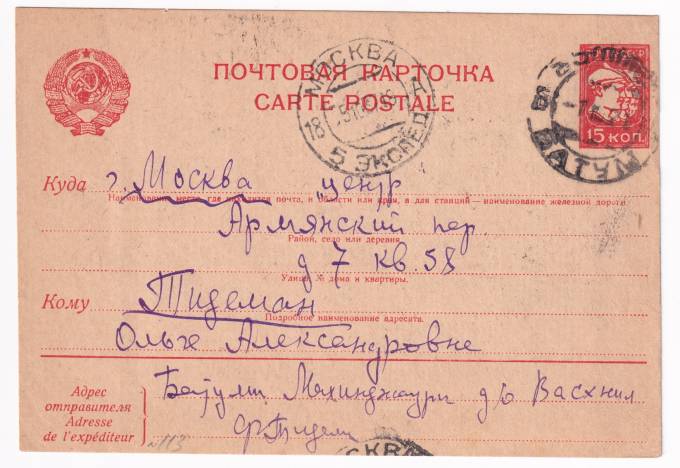 ПОЧТОВАЯ КАРТОЧКА
CARTE POSTALE
МОСКВА
18
5 ЭКСПЕД
15 КОП.
БАТУМ
Куда г. Москва центр
Наименование места, где находится почта, и области или края, а для станций — наименование железной дороги
Армянский пер.
Район, село или деревня.
д 7 кв. 58
Улица, № дома и квартиры.
Кому Тидеман
Подробное наименование адресата.
Ольге Александровне
Адрес
отправителя
Adresse
de l'expéditeur
Батуми Махинджаури д 6 Васхнил
№113